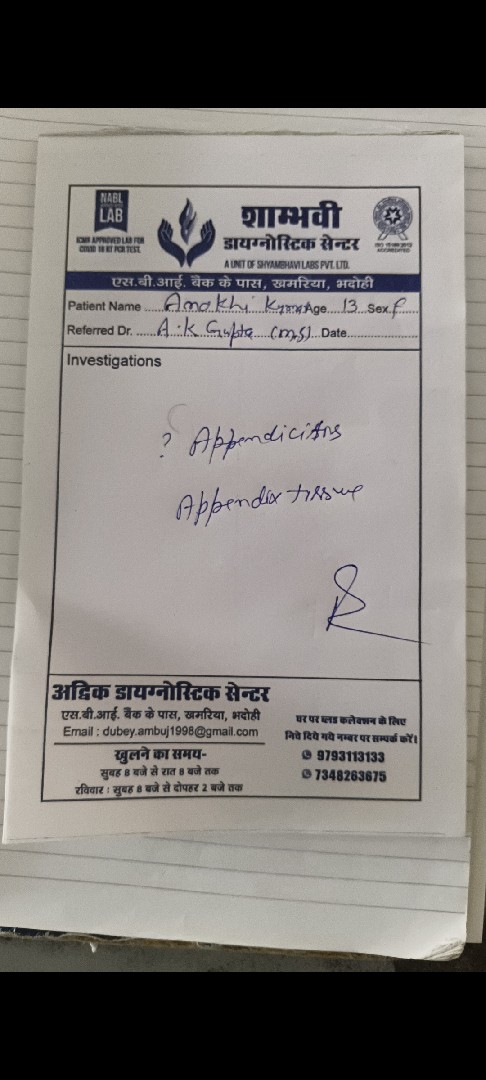 NABL
LAB
ICMR APPROVED LAB FOR
COVID 19 RT PCR TEST.
शाम्भवी
डायग्नोस्टिक सेन्टर
A UNIT OF SHYAMBHAVI LABS PVT. LTD.
एस.बी.आई. बैंक के पास, खमरिया, भदोही
Patient Name Anokhi Age 13 Sex F
Referred Dr. A.K Gupta (MS) Date
Investigations
? Appendicitis
Appendix tissue
अद्विक डायग्नोस्टिक सेन्टर
एस.बी.आई. बैंक के पास, खमरिया, भदोही
Email : dubey.ambuj1998@gmail.com
खुलने का समय-
सुबह 8 बजे से रात 8 बजे तक
रविवार : सुबह 8 बजे से दोपहर 2 बजे तक
घर पर ब्लड कलेक्शन के लिए
निचे दिये गये नम्बर पर सम्पर्क करें।
9793113133
7348263675